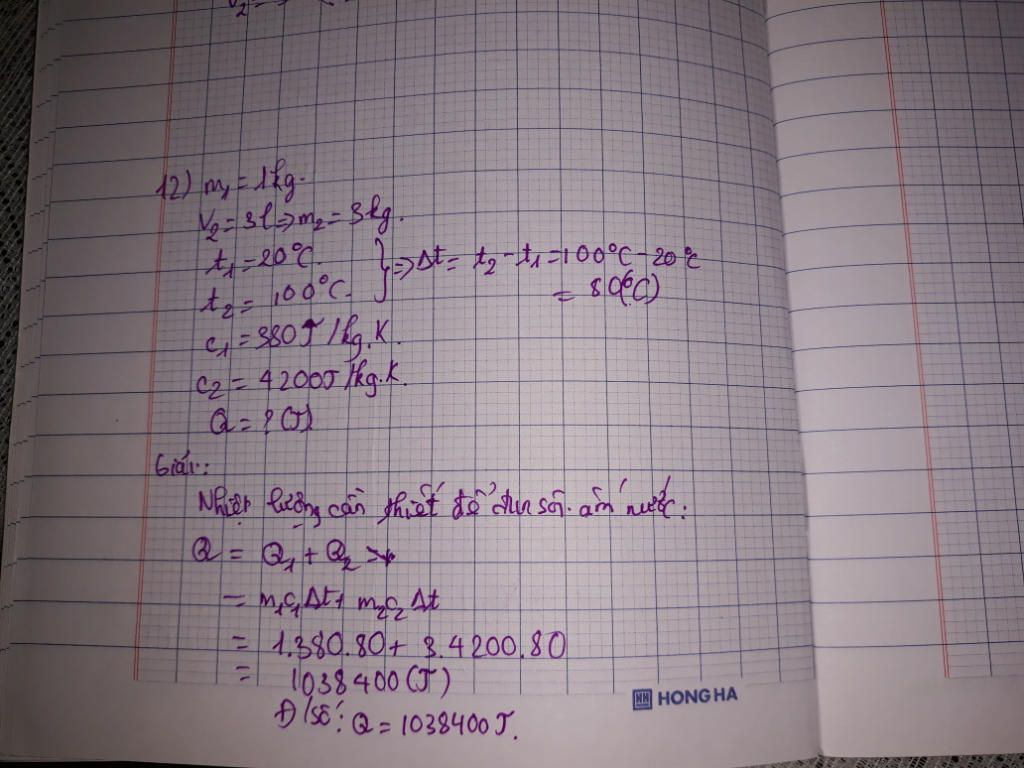 12) m₁ = 1kg.
V₂ = 3l ⇒ m₂ = 3kg.
t₁ = 20°C. } ⇒ Δt = t₂ - t₁ = 100°C - 20°C
t₂ = 100°C. = 80(°C)
c₁ = 380J/kg.K.
c₂ = 4200J/kg.K.
Q = ? (J)
Giải:
Nhiệt lượng cần thiết để đun sôi ấm nước:
Q = Q₁ + Q₂
= m₁c₁Δt + m₂c₂Δt
= 1.380.80 + 3.4200.80
= 1038400(J)
HONG HA
Đ/số: Q = 1038400J.